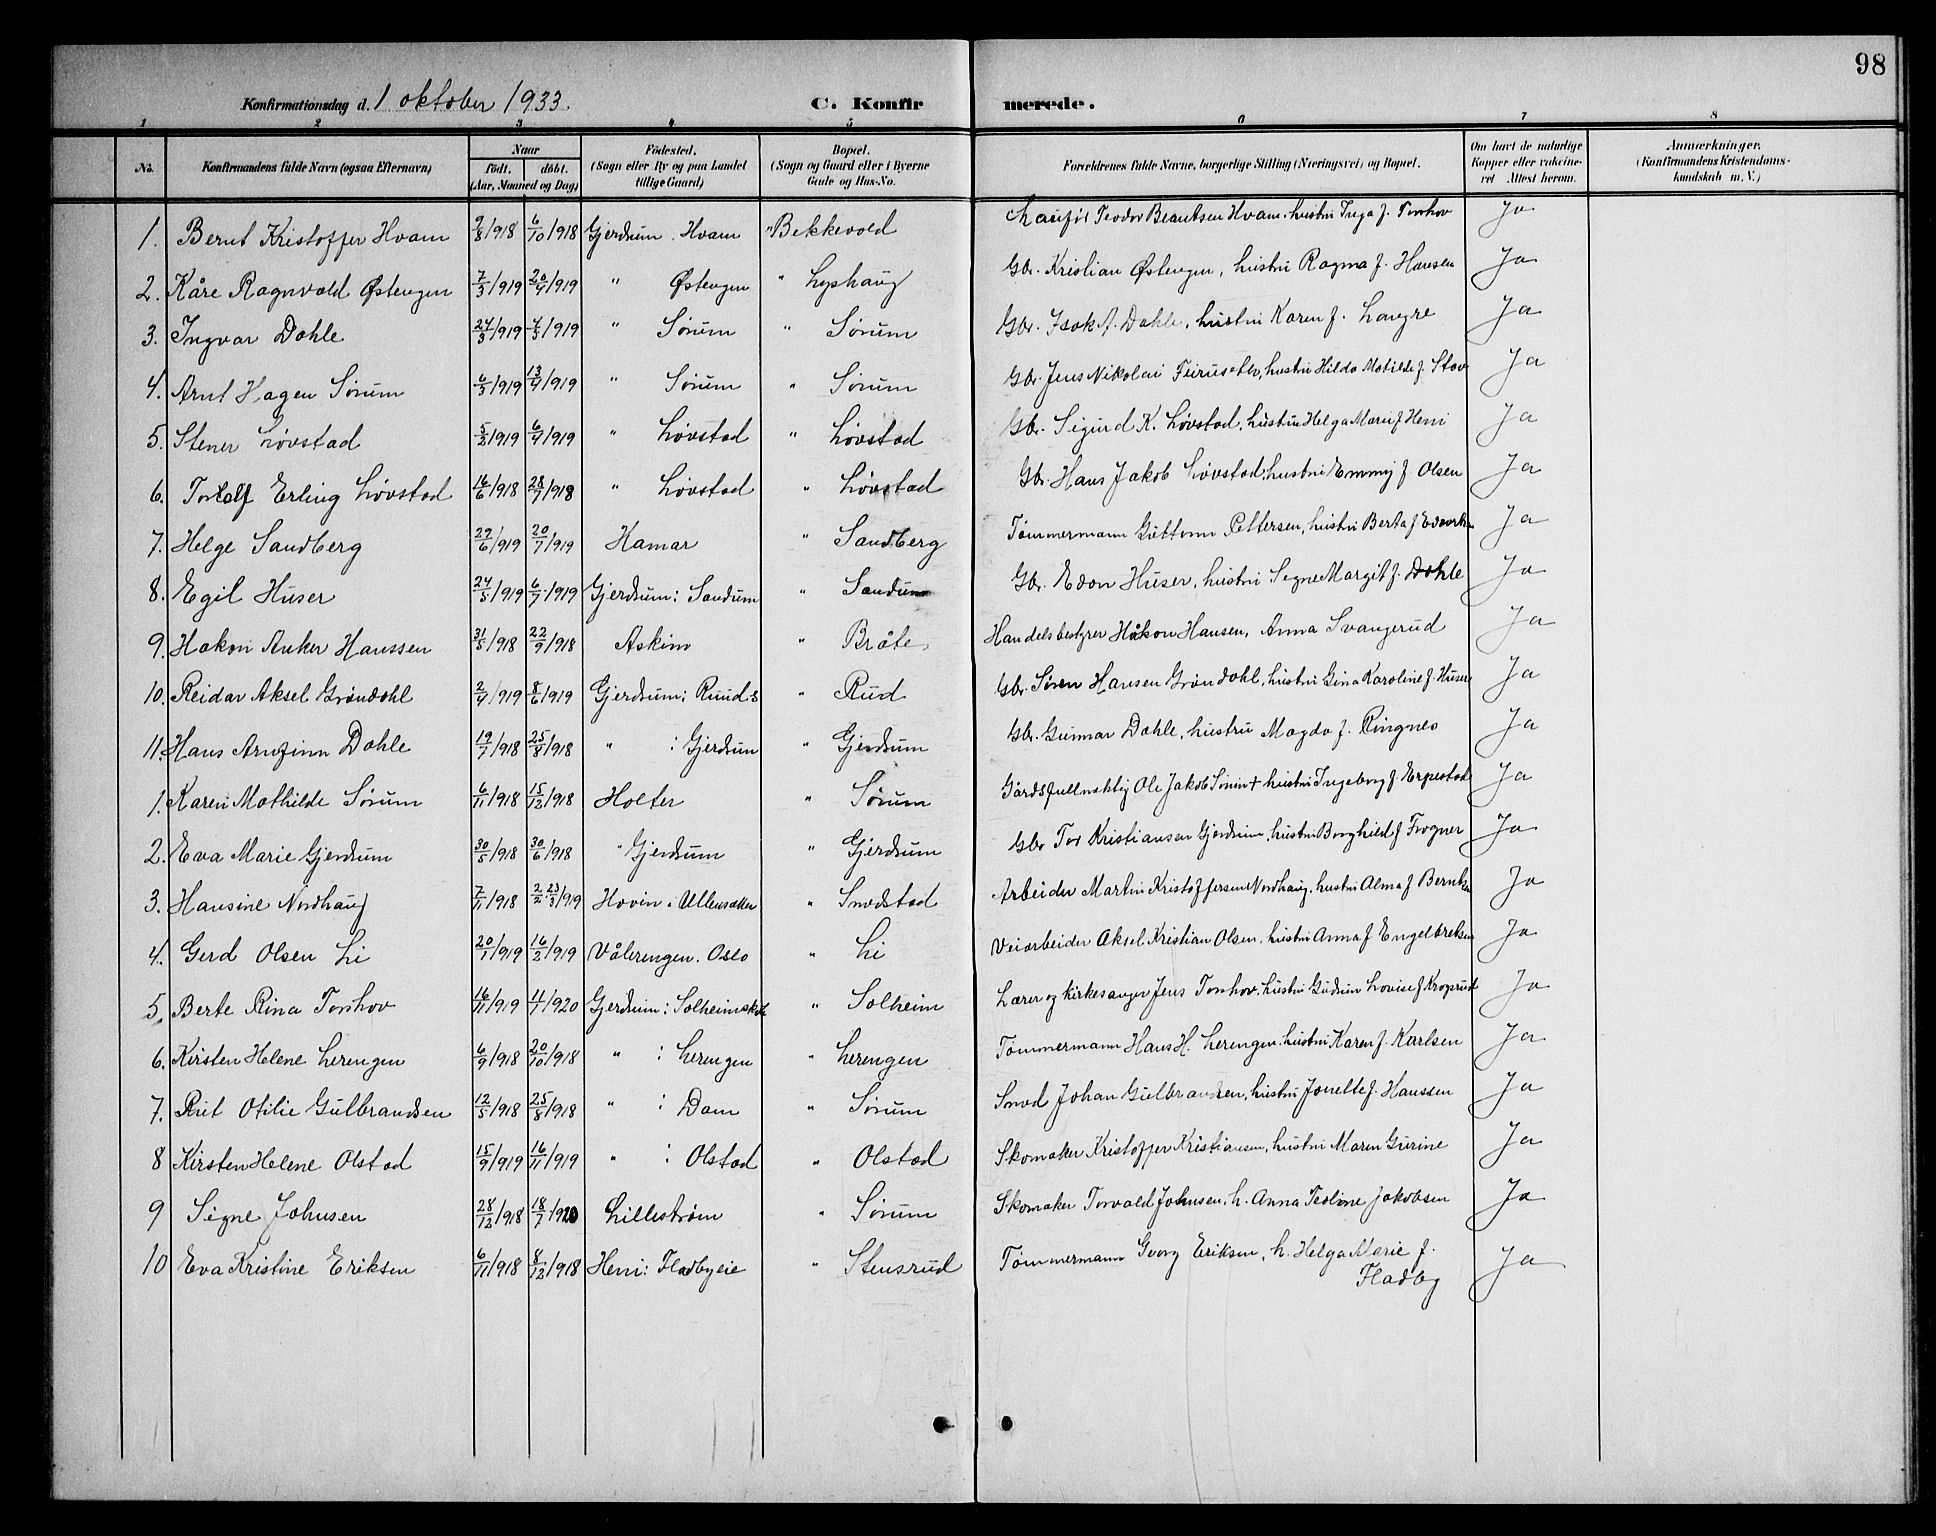 98
Konfirmationsdag d. 1 oktober 1933. C. Konfirmerede.
1 2 3 4 5 6 7 8
No. Konfirmandens fulde Navn (ogsaa Efternavn) Naar født. døbt. (Aar, Maaned og Dag) Fødested. (Sogn eller By og paa Landet tillige Gaard) Bopæl. (Sogn og Gaard eller i Byerne Gade og Hus-No. Forældrenes fulde Navne, borgerlige Stilling (Næringsvei) og Bopæl. Om havt de naturlige Kopper eller vaccineret Attest herom. Anmærkninger. (Konfirmandens Kristendomskundskab m. V.)
1. Bernt Kristoffer Hvam 9/8 1918 6/10 1918 Gjerdrum. Hvam " Bekkevold Chaufør Teodor Berntsen Hvam, hustru Inga f. Tonhov Ja
2. Kåre Ragnvald Østengen 7/3 1919 20/4 1919 " Østengen " Lyshaug Gbr. Kristian Østengen, hustru Ragna f. Hansen Ja
3. Ingvar Dahle 24/3 1919 4/5 1919 " Sørum " Sørum Gbr. Isak A. Dahle, hustru Karen f. Langre Ja
4. Arnt Hagen Sørum 6/3 1919 13/4 1919 " Sørum " Sørum Gbr. Jens Nikolai Furuseth, hustru Hilda Matilde f. Stav Ja
5. Stener Løvstad 5/2 1919 6/4 1919 " Løvstad " Løvstad Gbr. Sigurd K. Løvstad, hustru Helga Marie f Heni Ja
6. Torlelf Erling Løvstad 16/6 1918 28/7 1918 " Løvstad " Løvstad Gbr. Hans Jakob Løvstad, hustru Emmy f Olsen Ja
7. Helge Sandberg 29/6 1919 20/7 1919 Hamar " Sandberg Tømmermann Guttorm Pettersen, hustru Berta f Ja
8. Egil Huser 24/5 1919 6/7 1919 Gjerdrum: Sandum " Sandum Gbr. Edon Huser, hustru Signe Margit f. Dahle Ja
9. Hakon Anker Hanssen 31/5 1918 22/9 1918 Askim " Bråte Handelsbestyrer Håkon Hansen, Anna Svangerud Ja
10. Reidar Aksel Grøndahl 2/4 1919 8/6 1919 Gjerdrum: Ruud s " Rud Gbr. Søren Hansen Grøndahl, hustru Gina Karoline f. Huser Ja
11. Hans Arnfinn Dahle 19/7 1918 25/8 1918 " : Gjerdrum " Gjerdrum Gbr. Gunnar Dahle, hustru Magda f. Ringnes Ja
1. Karen Mathilde Sørum 6/11 1918 15/12 1918 Holter " Sørum Gårdsfullmektig Ole Jakob Sørum + hustru Ingeborg f. Erpestad Ja
2. Eva Marie Gjerdrum 30/5 1918 30/6 1918 " Gjerdrum " Gjerdrum Gbr Tor Kristiansen Gjerdrum, hustru Borghild f Frogner Ja
3. Hansine Nordhaug 7/11 1918 2/2 23/3 1919 Hovin i Ullensaker " Smedstad Arbeider Martin Kristoffersen Nordhaug, hustru Alma f Berntsen Ja
4. Gerd Olsen Li 20/1 1919 16/2 1919 Vålerengen. Oslo " Li Veiarbeider Aksel Kristian Olsen, hustru Anna f Engelbretsen Ja
5. Berte Rina Tonhov 16/11 1919 4/1 1920 Gjerdrum: Solheimskole " Solheim Lærer og kirkesanger Jens Tonhov, hustru Gudrun Lovise f Kroprud Ja
6. Kirsten Helene Lerengen 6/9 1918 20/10 1918 " : Lerengen " Lerengen Tømmermann Hans H. Lerengen, hustru Karen f. Karlsen Ja
7. Rut Otilie Gulbrandsen 12/5 1918 25/8 1918 " : Dam " Sørum Smed Johan Gulbrandsen, hustru Jonette f. Hanssen Ja
8 Kirsten Helene Olstad 15/9 1919 16/11 1919 " : Olstad " Olstad Skomaker Kristoffer Kristiansen, hustru Maren Gurine Ja
9 Signe Johnsen 28/12 1918 18/7 1920 Lillestrøm " Sørum Skomaker Torvald Johnsen, h. Anna Teoline Jakobsen Ja
10 Eva Kristine Eriksen 6/11 1918 8/12 1918 Heni: Fladbyeie " Stensrud Tømmermann Georg Eriksen, h. Helga Marie f. Fladby Ja